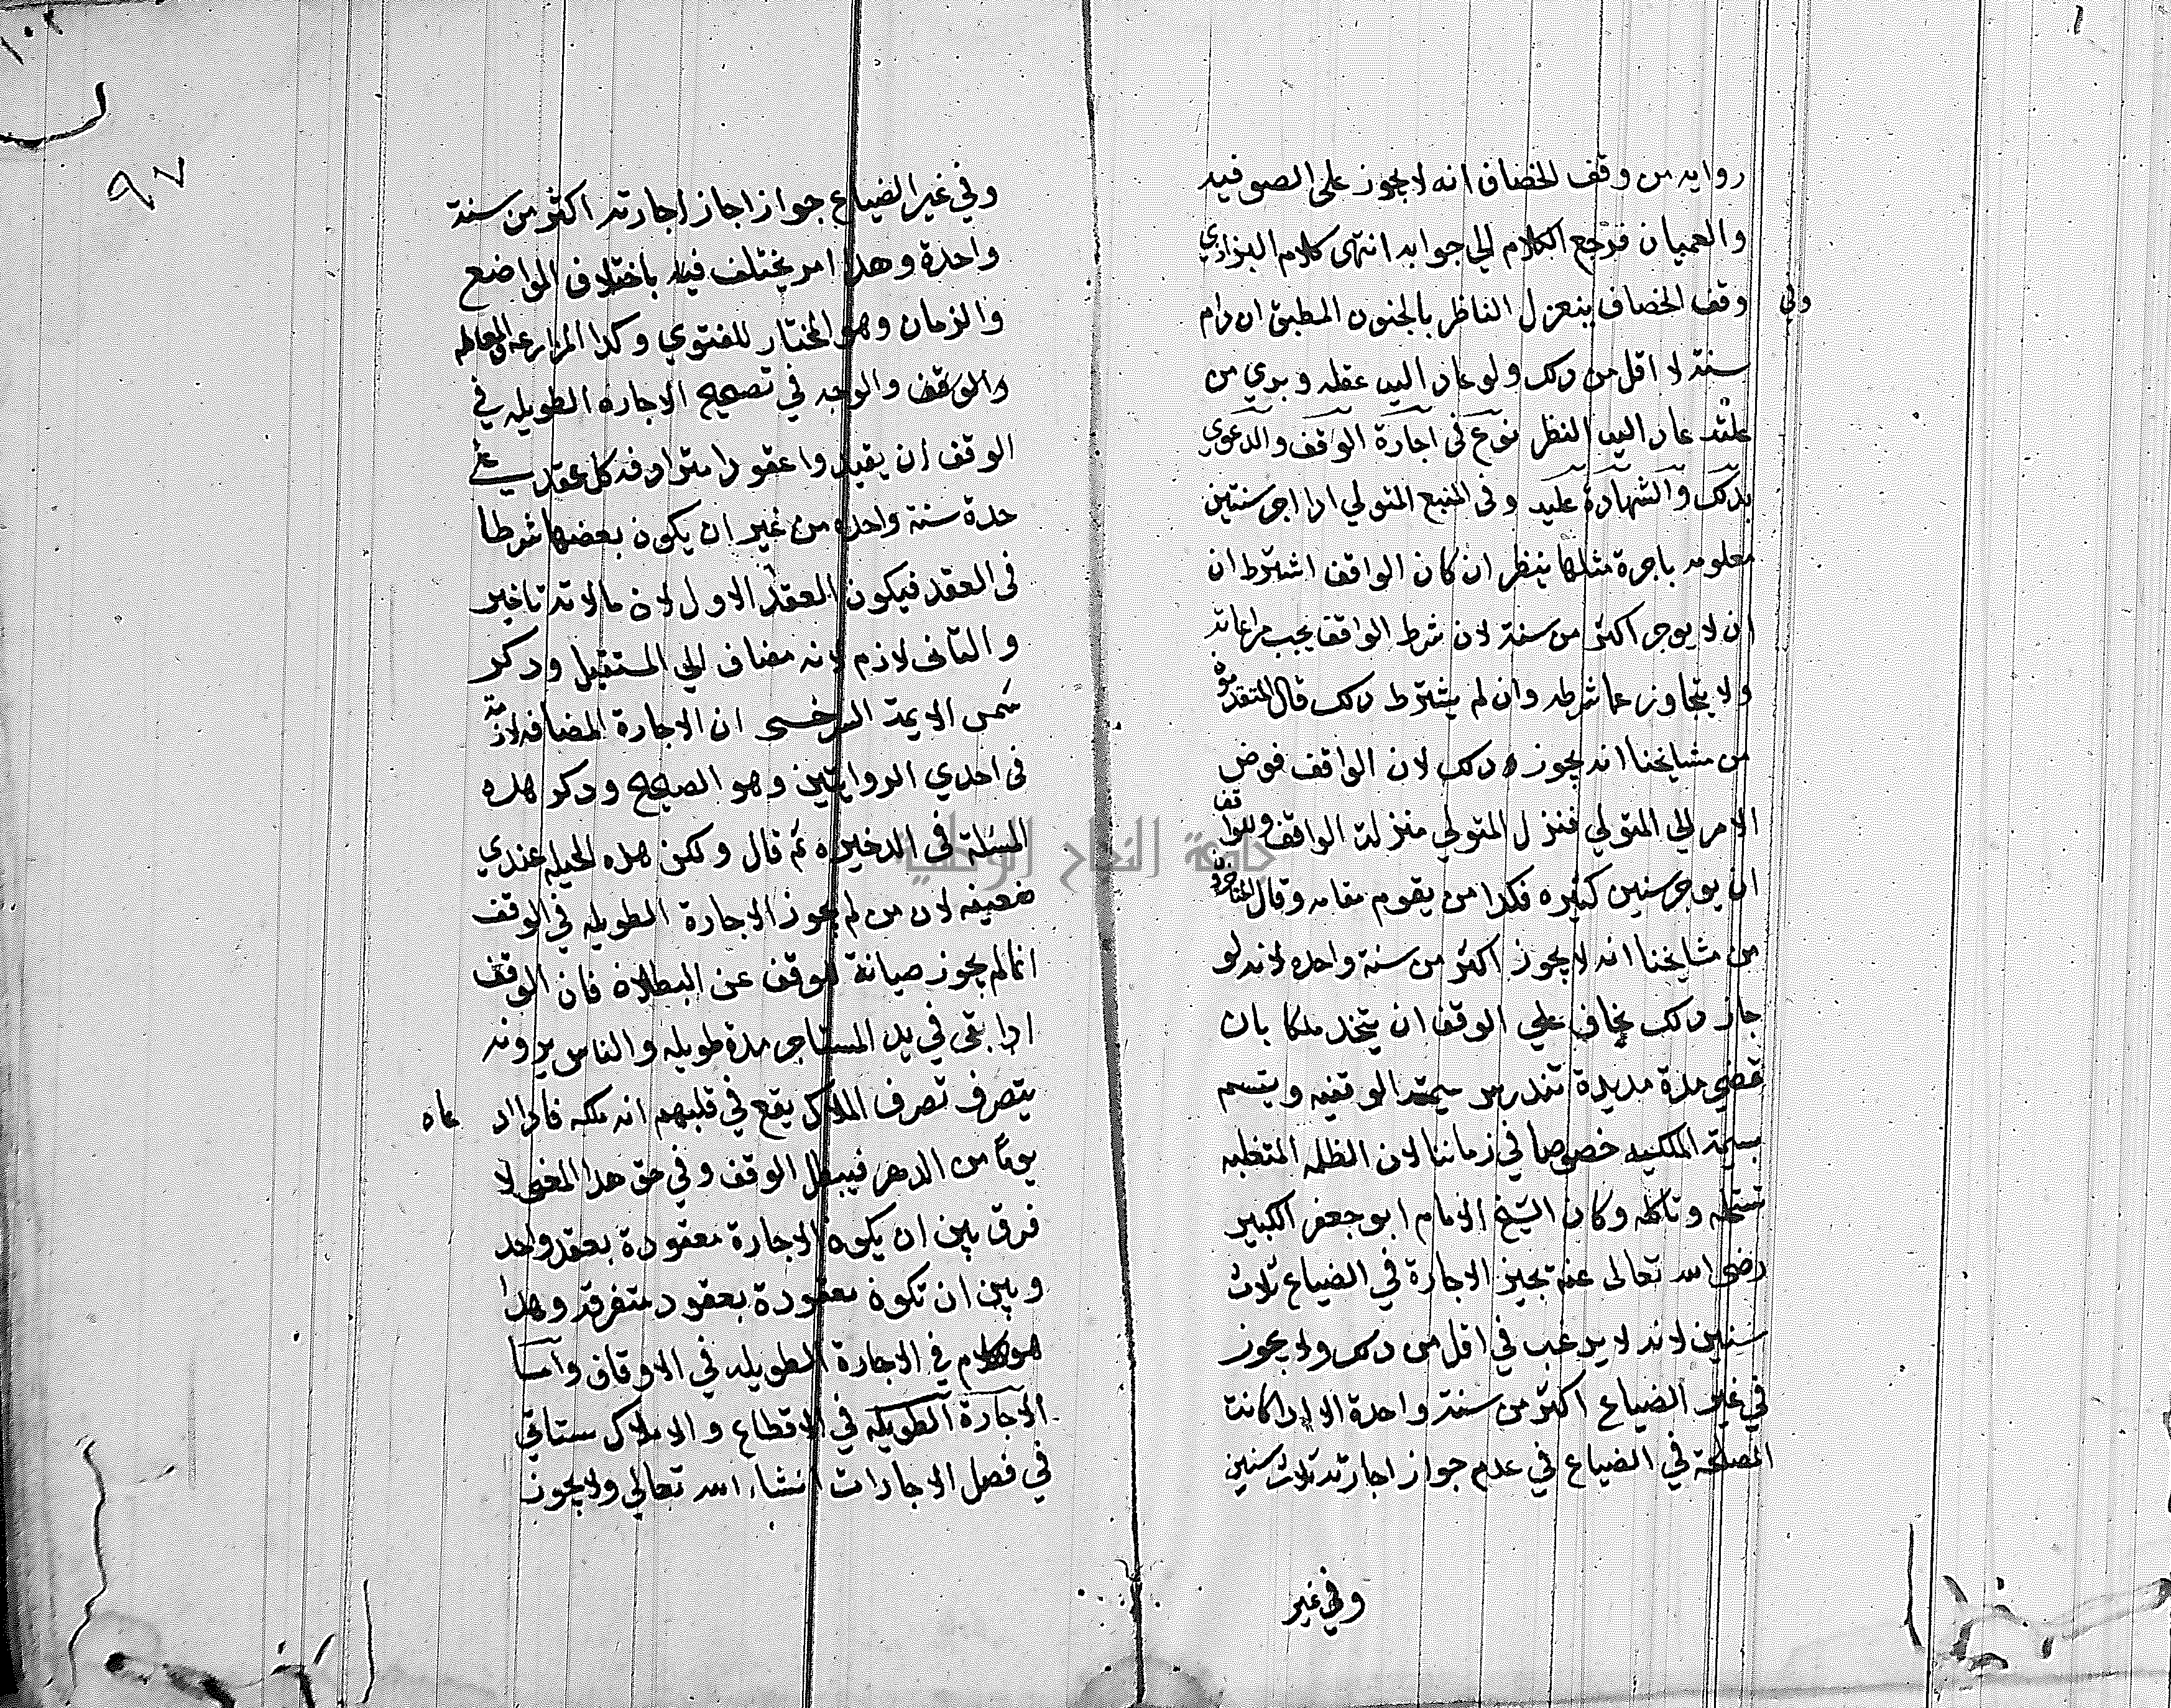 روايه من وقف الخصاف انه لا يجوز على الصوفيه
والعميان فرجع الكلام الي جوابه انتهى كلام البزازي
وفي وقف الخصاف ينعزل الناظر بالجنون المطبق ان دام
سنة لا اقل من دلك ولو عاد اليه عقله وبري من
علته عاد اليه النظر نوع في اجارة الوقف والدعوي
بدلك والشهادة عليه وفي المنبع المتولي ادا اجر سنين
معلومه باجرة مثلها ينظر ان كان الواقف اشترط ان
ان لا يوجر اكثر من سنة لان شرط الواقف يجب مراعاته
ولا يتجاوز عما شرطه وان لم يشترط دلك قال المتقدمون
من مشايخنا انه يجوز دلك لان الواقف فوض
الامر الي المتولي فنزل المتولي منزلة الواقف وللواقف
ان يوجر سنين كثيره فكدا من يقوم مقامه وقال المتاخرون
من مشايخنا انه لا يجوز اكثر من سنة واحده لانه لو
جاز دلك يخاف علي الوقف ان يتخد ملكا بان
تمضي مدة مديدة تندرس سمة الوقفيه ويتسم
بسمة الملكيه خصوصا في زماننا لان الظلمه المتغلبه
تستحله وتاكله وكان الشيخ الامام ابو جعفر الكبير
رضى الله تعالى عنه يجيز الاجارة في الضياع ثلاث
سنين لانه لا يرغب في اقل من دلك ولا يجوز
في غير الضياع اكثر من سنة واحدة الا ادا كانت
المصلحة في الضياع في عدم جواز اجارته ثلاث سنين
وفي غير
١٠٢
٩٧
وفي غير الضياع جواز اجاز اجارته اكثر من سنة
واحدة وهدا امر يختلف فيه باختلاف المواضع
والزمان وهو المختار للفتوي وكدا المزارعه والمعامله
والوقف والوجه في تصحيح الاجاره الطويله في
الوقف ان يقبلوا عقودا مترادفه كل عقد على
حدة سنة واحده من غير ان يكون بعضها شرطا
في العقد فيكون العقد الاول لازما لانه تاخير
والثاني لازم لانه مضاف الي المستقبل ودكر
شمس الايمة السرخسي ان الاجارة المضافه لازمة
في احدي الروايتين وهو الصحيح ودكر هده
المسئلة في الدخيره ثم قال ولكن هده الحيله عندي
ضعيفه لان من لم يجوز الاجارة الطويله في الوقف
انما لم يجوز صيانة للوقف عن البطلان فان الوقف
ادا بقى في يد المستاجر مدة طويله والناس يرونه
يتصرف تصرف الملاك يقع في قلبهم انه ملكه فادا ادعاه
يوما من الدهر فيبطل الوقف وفي حق هدا المعنى لا
فرق بين ان يكون الاجارة معقودة بعقد واحد
وبين ان تكون معقودة بعقود متفرقة وهدا
هو الكلام في الاجارة الطويله في الاوقاف واما
الاجارة الطويله في الاقطاع والاملاك ستاتي
في فصل الاجارات انشاء الله تعالي ولا يجوز
جامعة النجاح الوطنية